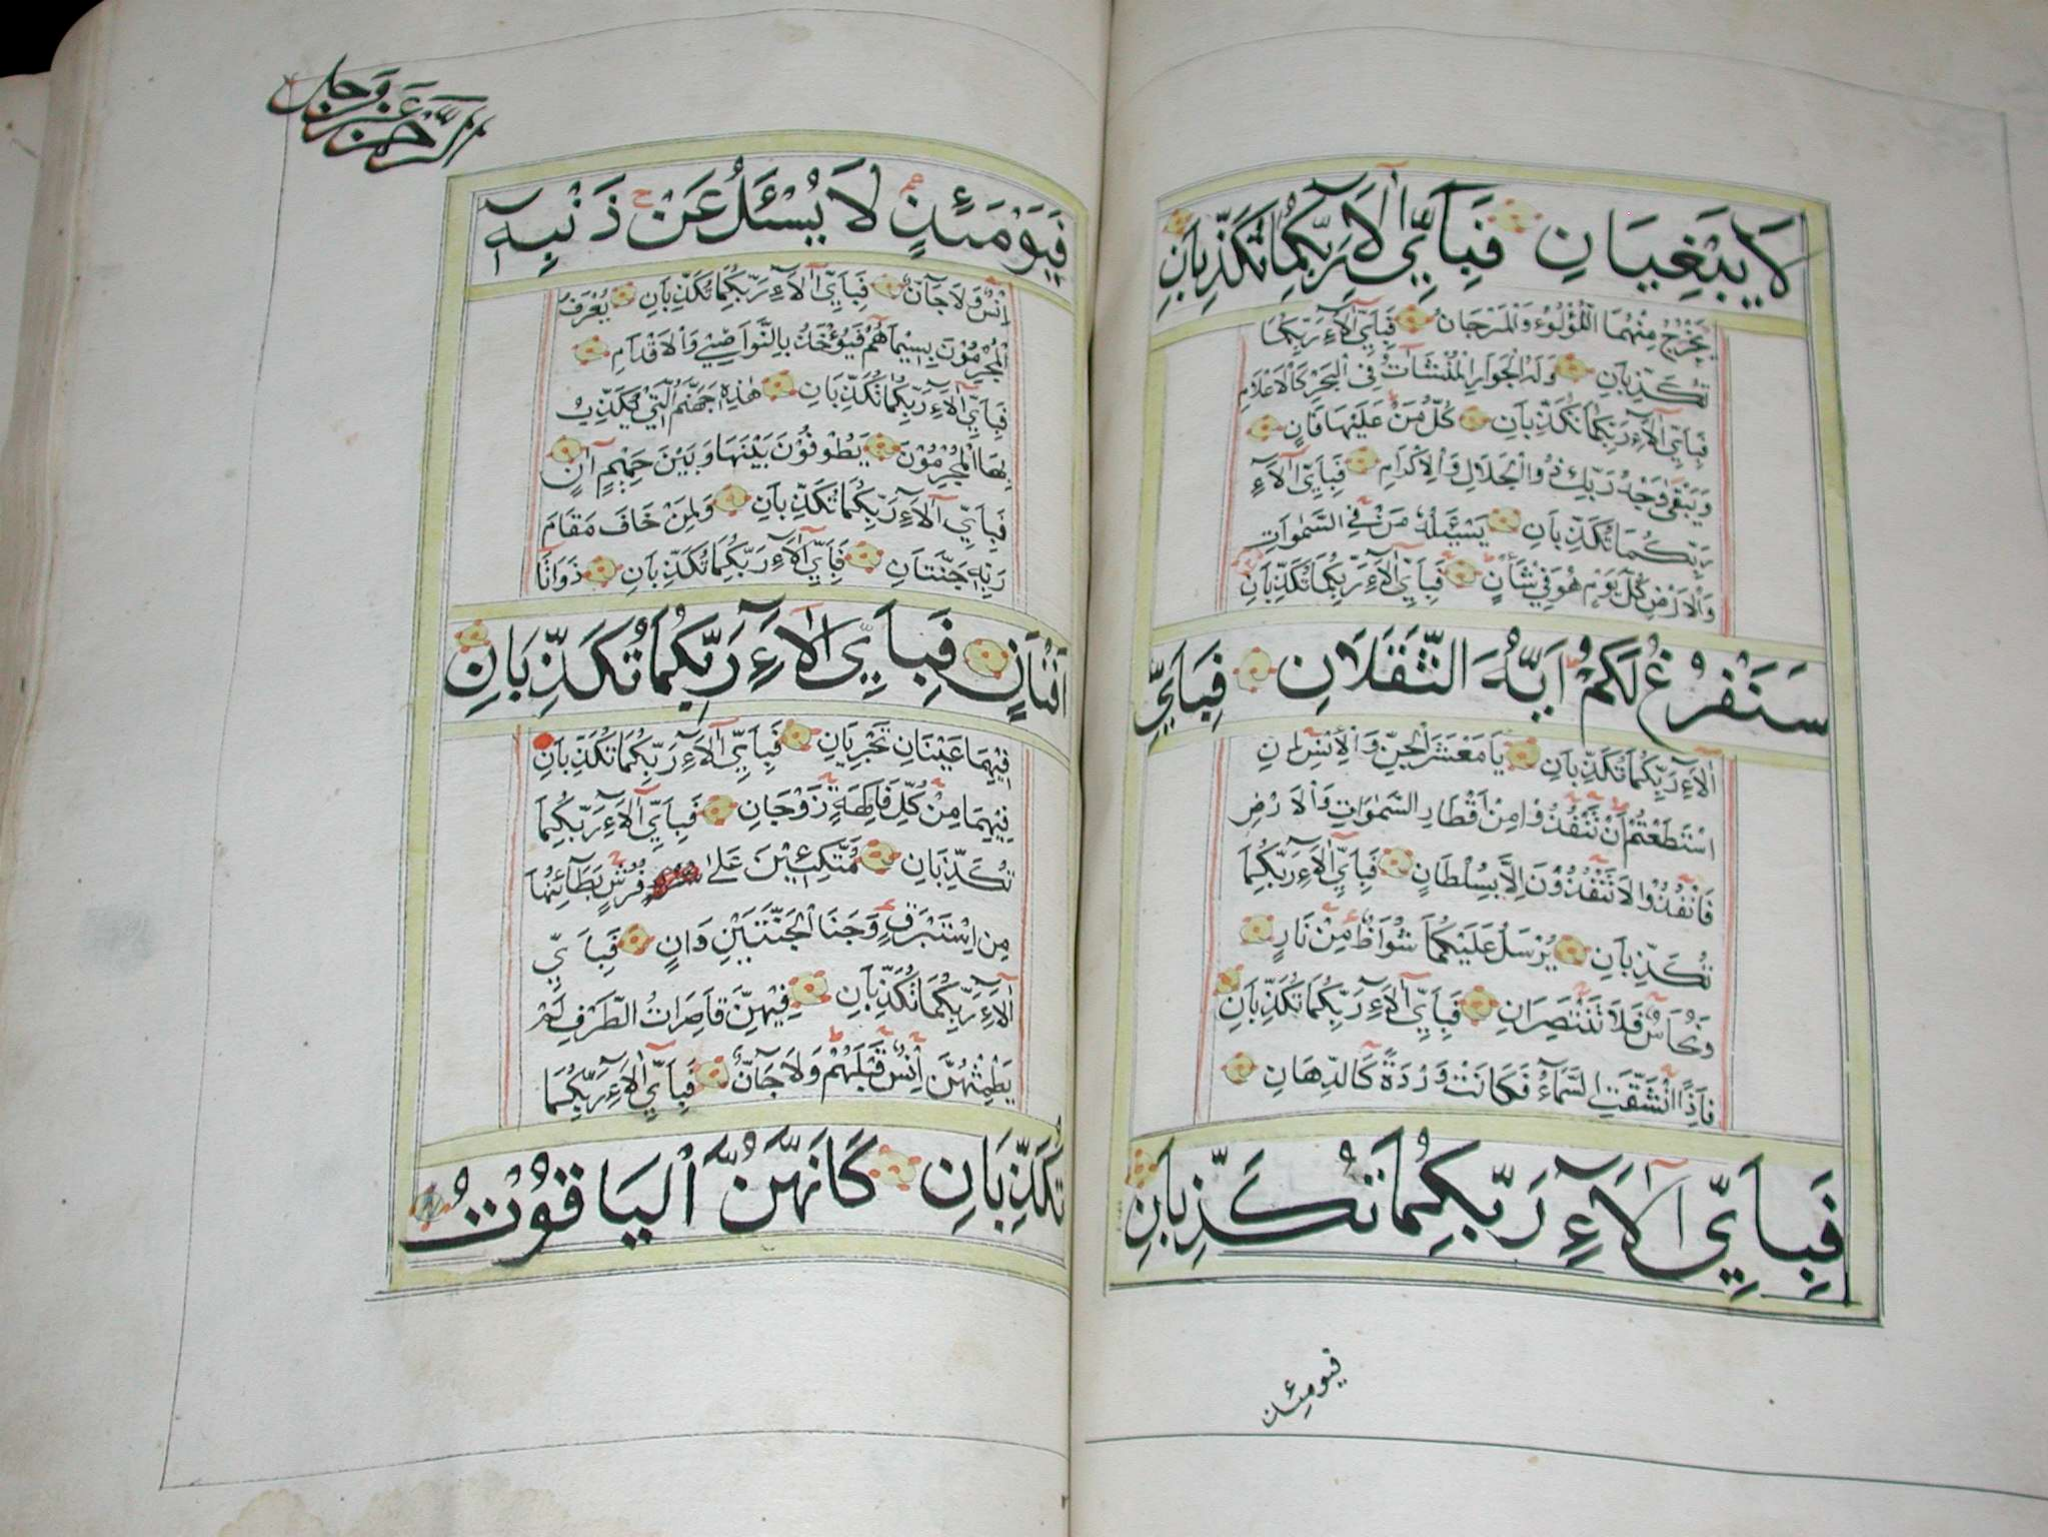 لَا يَبْغِيَانِ فَبِاَيِّ اٰلَاۤءِ رَبِّكُمَا تُكَذِّبَانِ
يَخْرُجُ مِنْهُمَا اللُّؤْلُوءُ وَالْمَرْجَانُ فَبِاَيِّ اٰلَاۤءِ رَبِّكُمَا
تُكَذِّبَانِ وَلَهُ الْجَوَارِ الْمُنْشَاٰتُ فِى الْبَحْرِ كَالْاَعْلَامِ
فَبِاَيِّ اٰلَاۤءِ رَبِّكُمَا تُكَذِّبَانِ كُلُّ مَنْ عَلَيْهَا فَانٍ
وَيَبْقٰى وَجْهُ رَبِّكَ ذُوالْجَلَالِ وَالْاِكْرَامِ فَبِاَيِّ اٰلَاۤءِ
رَبِّكُمَا تُكَذِّبَانِ يَسْـَٔلُهُ مَنْ فِى السَّمٰوَاتِ
وَالْاَرْضِ كُلَّ يَوْمٍ هُوَ فِي شَأْنٍ فَبِاَيِّ اٰلَاۤءِ رَبِّكُمَا تُكَذِّبَانِ
سَنَفْرُغُ لَكُمْ اَيُّهَ الثَّقَلَانِ فَبِاَيِّ
اٰلَاۤءِ رَبِّكُمَا تُكَذِّبَانِ يَا مَعْشَرَ الْجِنِّ وَالْاِنْسِ اِنِ
اسْتَطَعْتُمْ اَنْ تَنْفُذُوا مِنْ اَقْطَارِ السَّمٰوَاتِ وَالْاَرْضِ
فَانْفُذُوْا لَا تَنْفُذُوْنَ اِلَّا بِسُلْطَانٍ فَبِاَيِّ اٰلَاۤءِ رَبِّكُمَا
تُكَذِّبَانِ يُرْسَلُ عَلَيْكُمَا شُوَاظٌ مِنْ نَارٍ
وَنُحَاسٌ فَلَا تَنْتَصِرَانِ فَبِاَيِّ اٰلَاۤءِ رَبِّكُمَا تُكَذِّبَانِ
فَاِذَا انْشَقَّتِ السَّمَاۤءُ فَكَانَتْ وَرْدَةً كَالدِّهَانِ
فَبِاَيِّ اٰلَاۤءِ رَبِّكُمَا تُكَذِّبَانِ
فيومئذ
الرَّحْمٰن عَزَّ وَجَلَّ
فَيَوْمَئِذٍ لَا يُسْئَلُ عَنْ ذَنْبِهٖ
اِنْسٌ وَلَا جَاۤنٌّ فَبِاَيِّ اٰلَاۤءِ رَبِّكُمَا تُكَذِّبَانِ يُعْرَفُ
الْمُجْرِمُوْنَ بِسِيْمَاهُمْ فَيُؤْخَذُ بِالنَّوَاصِيْ وَالْاَقْدَامِ
فَبِاَيِّ اٰلَاۤءِ رَبِّكُمَا تُكَذِّبَانِ هٰذِهٖ جَهَنَّمُ الَّتِيْ يُكَذِّبُ
بِهَا الْمُجْرِمُوْنَ يَطُوفُوْنَ بَيْنَهَا وَبَيْنَ حَمِيْمٍ اٰنٍ
فَبِاَيِّ اٰلَاۤءِ رَبِّكُمَا تُكَذِّبَانِ وَلِمَنْ خَافَ مَقَامَ
رَبِّهٖ جَنَّتَانِ فَبِاَيِّ اٰلَاۤءِ رَبِّكُمَا تُكَذِّبَانِ ذَوَاتَا
اَفْنَانٍ فَبِاَيِّ اٰلَاۤءِ رَبِّكُمَا تُكَذِّبَانِ
فِيْهِمَا عَيْنَانِ تَجْرِيَانِ فَبِاَيِّ اٰلَاۤءِ رَبِّكُمَا تُكَذِّبَانِ
فِيْهِمَا مِنْ كُلِّ فَاكِهَةٍ زَوْجَانِ فَبِاَيِّ اٰلَاۤءِ رَبِّكُمَا
تُكَذِّبَانِ مُتَّكِـِٔيْنَ عَلٰى فُرُشٍ بَطَاۤئِنُهَا
مِنْ اِسْتَبْرَقٍ وَجَنَا الْجَنَّتَيْنِ دَانٍ فَبِاَيِّ
اٰلَاۤءِ رَبِّكُمَا تُكَذِّبَانِ فِيْهِنَّ قَاصِرَاتُ الطَّرْفِ لَمْ
يَطْمِثْهُنَّ اِنْسٌ قَبْلَهُمْ وَلَا جَاۤنٌّ فَبِاَيِّ اٰلَاۤءِ رَبِّكُمَا
تُكَذِّبَانِ كَاَنَّهُنَّ الْيَاقُوْتُ